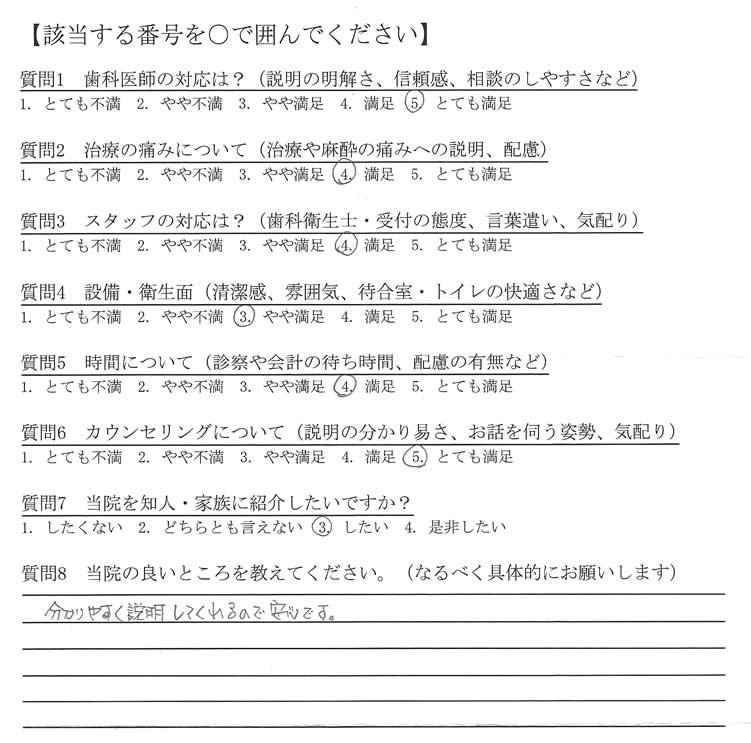 【該当する番号を○で囲んでください】
質問1　歯科医師の対応は？（説明の明解さ、信頼感、相談のしやすさなど）
1. とても不満　2. やや不満　3. やや満足　4. 満足　5　とても満足
質問2　治療の痛みについて（治療や麻酔の痛みへの説明、配慮）
1. とても不満　2. やや不満　3. やや満足　4. 満足　5. とても満足
質問3　スタッフの対応は？（歯科衛生士・受付の態度、言葉遣い、気配り）
1. とても不満　2. やや不満　3. やや満足　4. 満足　5. とても満足
質問4　設備・衛生面（清潔感、雰囲気、待合室・トイレの快適さなど）
1. とても不満　2. やや不満　3. やや満足　4. 満足　5. とても満足
質問5　時間について（診察や会計の待ち時間、配慮の有無など）
1. とても不満　2. やや不満　3. やや満足　4. 満足　5. とても満足
質問6　カウンセリングについて（説明の分かり易さ、お話を伺う姿勢、気配り）
1. とても不満　2. やや不満　3. やや満足　4. 満足　5. とても満足
質問7　当院を知人・家族に紹介したいですか？
1. したくない　2. どちらとも言えない　3. したい　4. 是非したい
質問8　当院の良いところを教えてください。（なるべく具体的にお願いします）
分かりやすく説明してくれるので安心です。